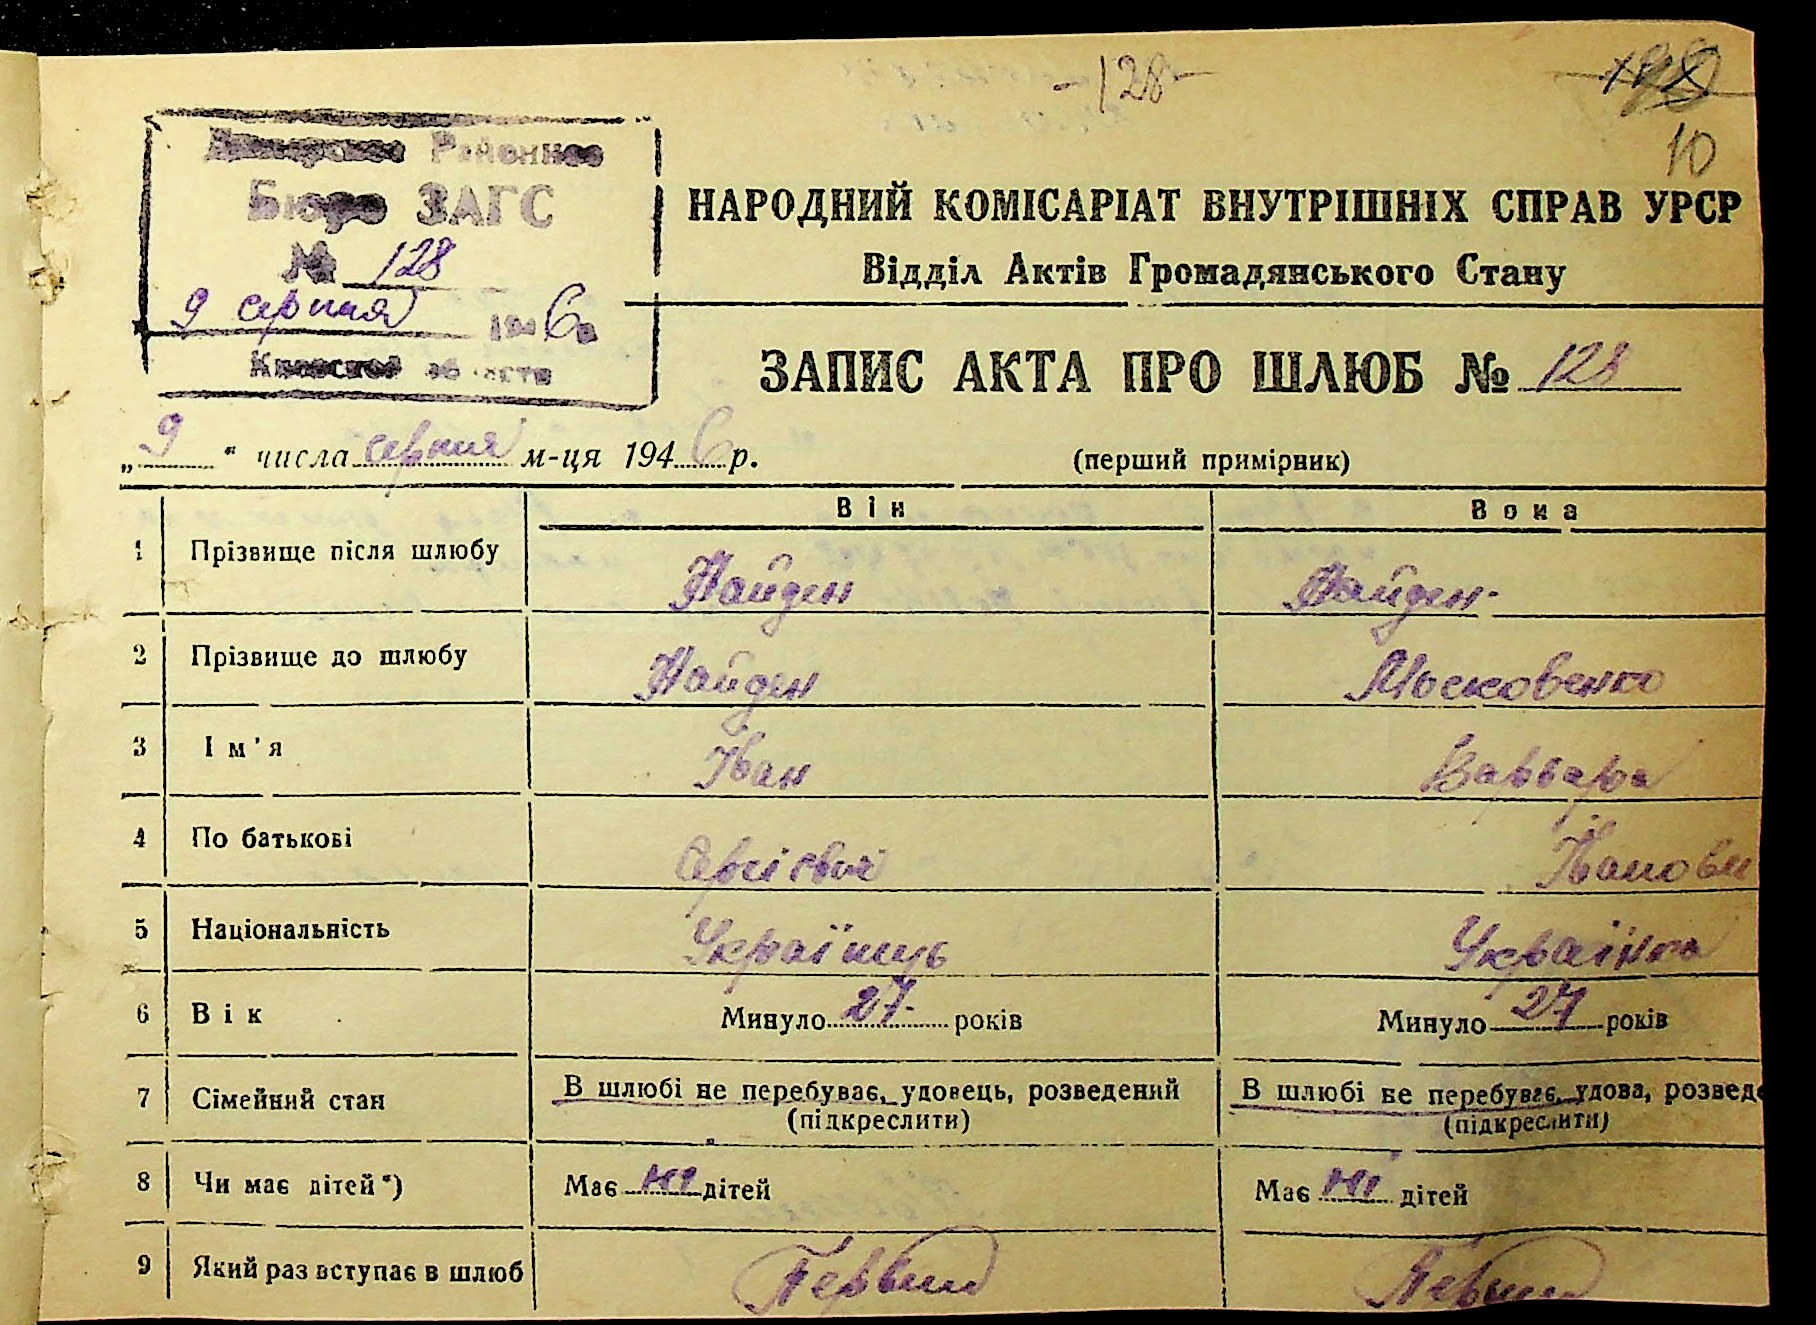 -128-
10
Районное
Бюро ЗАГС
№ 128
9 серпня 1946
Киевской области
НАРОДНИЙ КОМІСАРІАТ ВНУТРІШНІХ СПРАВ УРСР
Відділ Актів Громадянського Стану
ЗАПИС АКТА ПРО ШЛЮБ № 128
„9“ числа серпня м-ця 1946 р. (перший примірник)
Він Вона
1 Прізвище після шлюбу Найден Найден
2 Прізвище до шлюбу Найден Московенко
3 Ім'я Іван Варвара
4 По батькові Сергієвич Івановн
5 Національність Українець Українка
6 Вік Минуло 27 років Минуло 24 років
7 Сімейний стан В шлюбі не перебуває, удовець, розведений В шлюбі не перебуває, удова, розведе
(підкреслити) (підкреслити)
8 Чи має дітей*) Має ні дітей Має ні дітей
9 Який раз вступає в шлюб Первий Первий